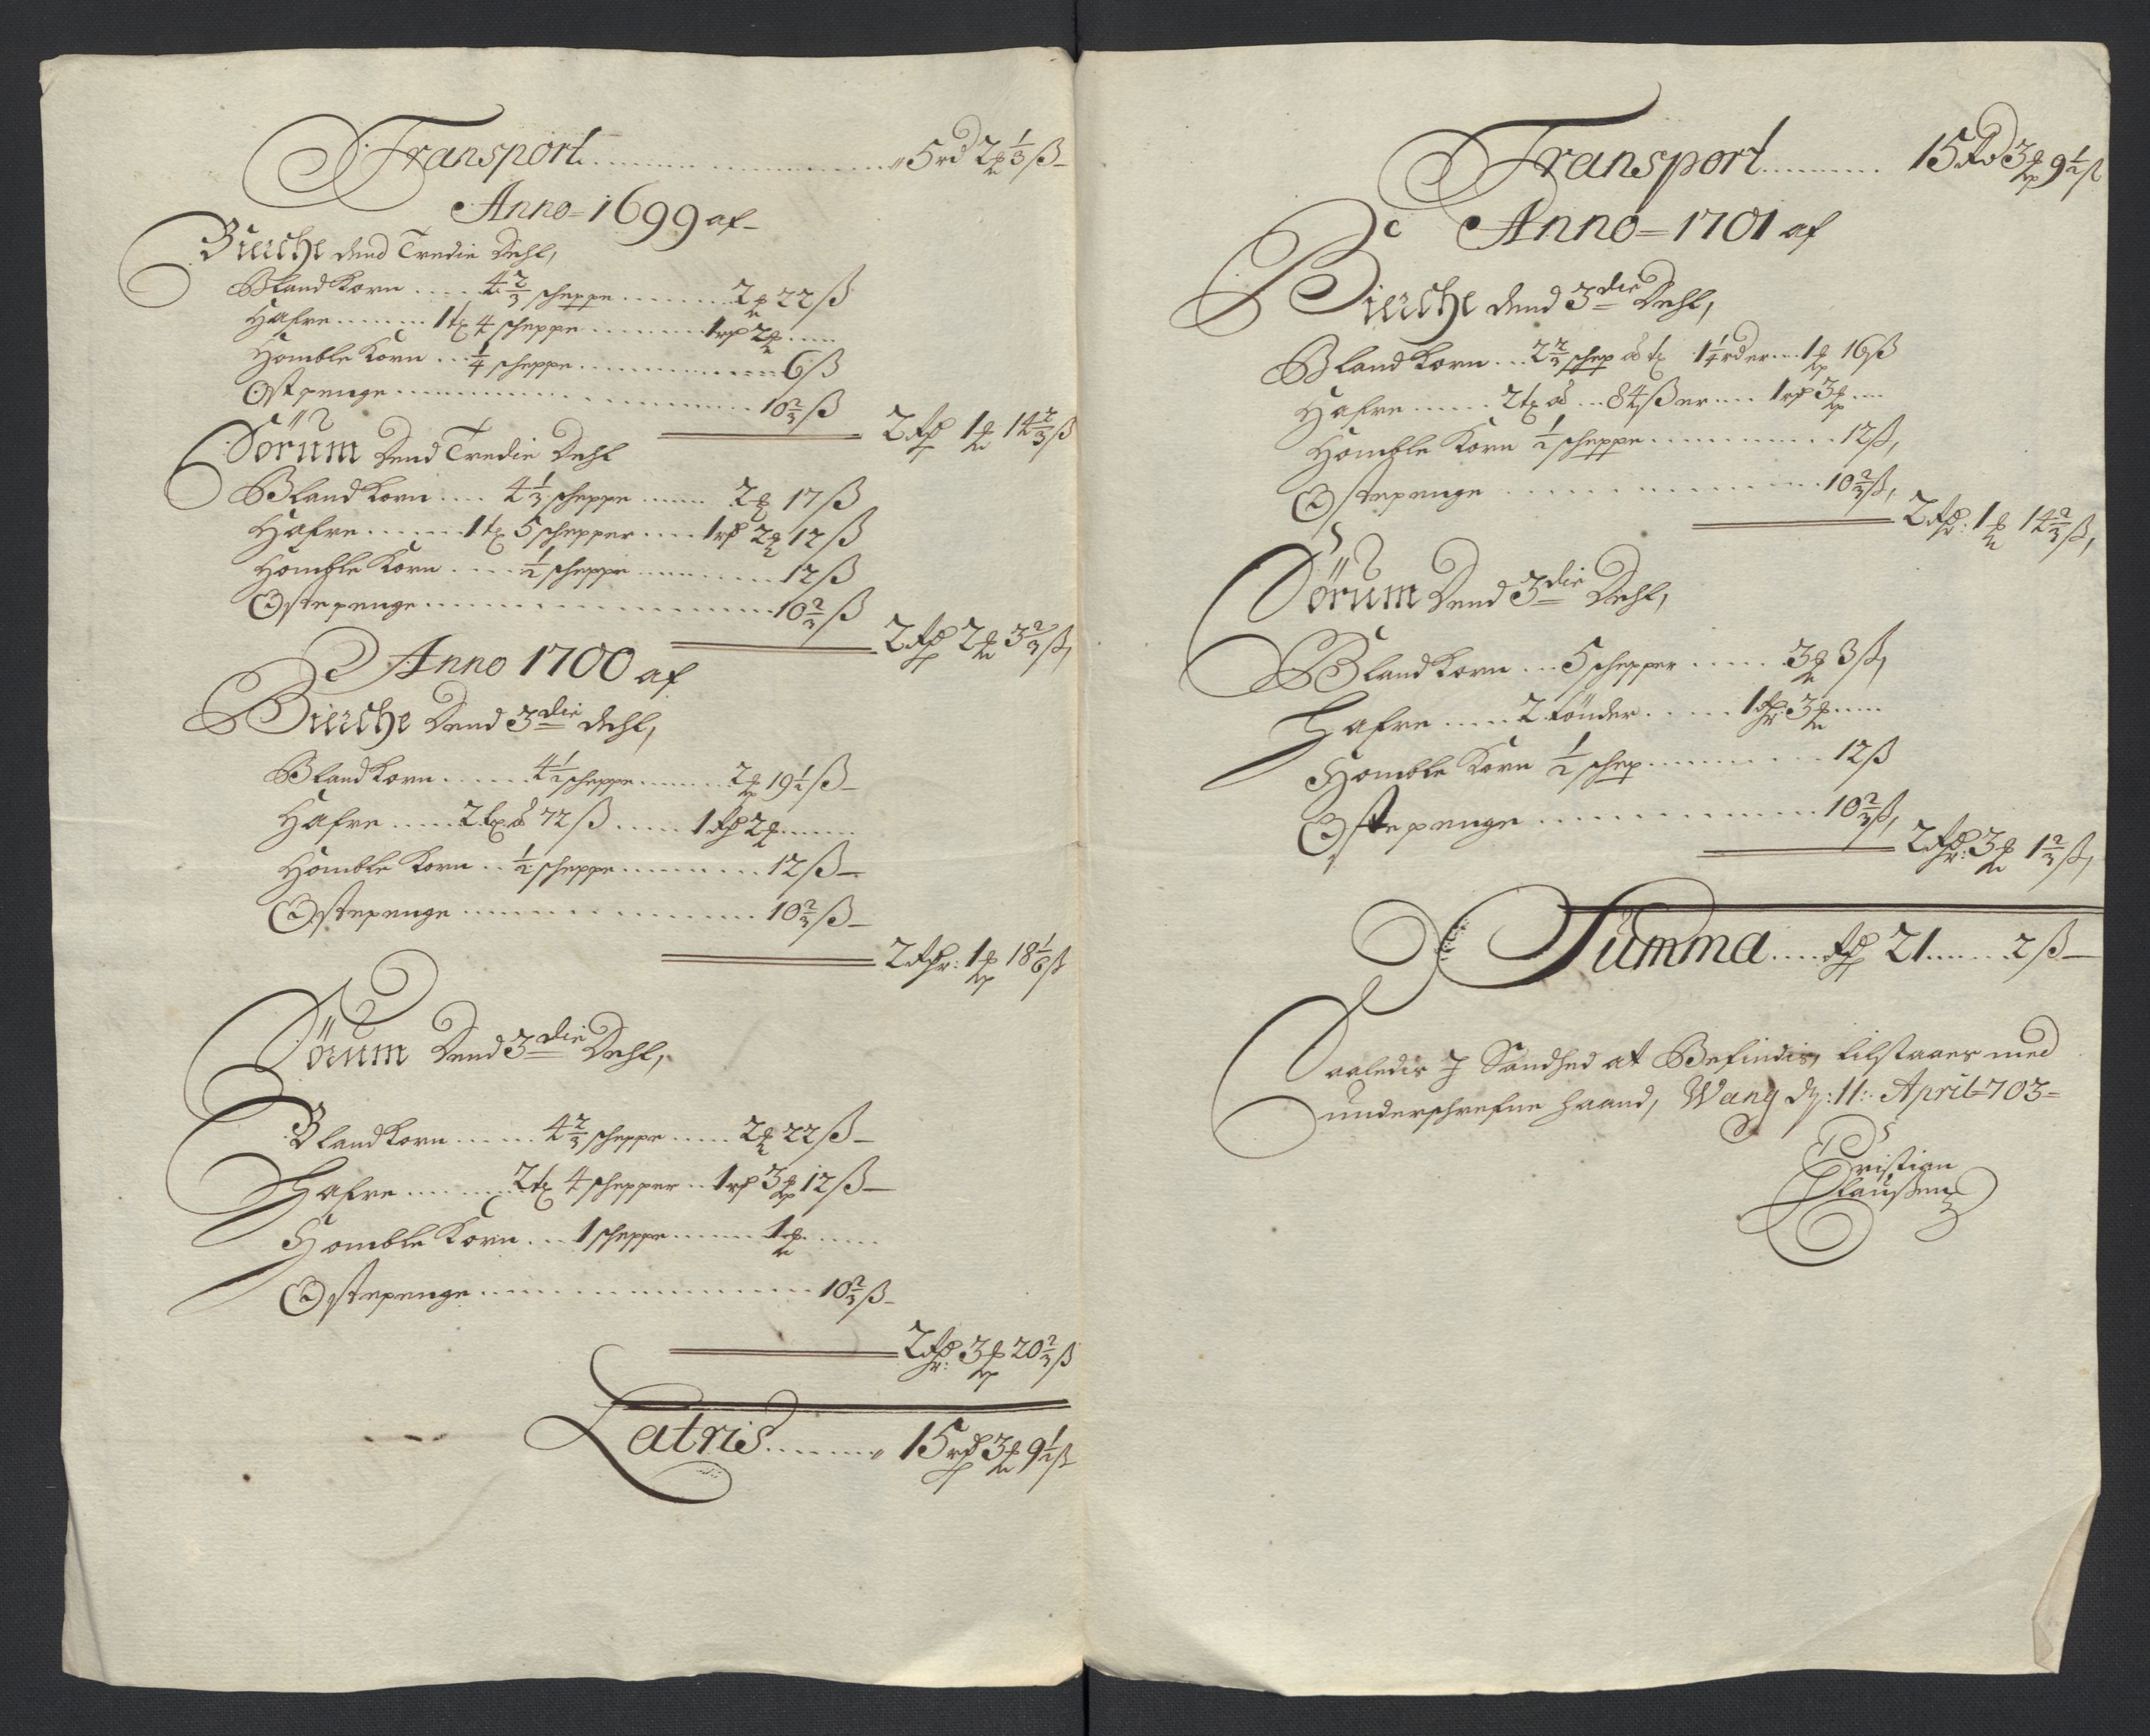 Transport ........ 5 rd 2 ₰ 1/3 ß
Anno 1699 af
Bierche dend Tredie Dehl,
Bland Korn .... 4 2/3 scheppe ....... 2 ₰ 22 ß
Hafre ........ 1 tø 4 scheppe ........ 1 rd 2 ₰ ....
Homble Korn ... 1/4 scheppe ........ 6 ß
Ostpenge ........ 10 2/3 ß
2 Rd 1 ₰ 14 2/3 ß
Sörum Dend Tredie Dehl
Bland Korn .... 4 1/3 scheppe ...... 2 ₰ 17 ß
Hafre ...... 1 tø 5 schepper .... 1 rd 2 ₰ 12 ß
Homble Korn .... 1/2 scheppe ........ 12 ß
Ostepenge ........ 10 2/3 ß
2 Rd 2 ₰ 3 2/3 ß,
Anno 1700 af
Bierche Dend 3die dehl,
Bland Korn ...... 4 1/2 scheppe ...... 2 ₰ 19 1/2 ß
Hafre ..... 2 tø à 72 ß ..... 1 Rd 2 ₰ ......
Homble Korn .. 1/2 scheppe ........ 12 ß
Ostepenge ........ 10 2/3 ß
2 Rdr: 1 ₰ 18 1/6 ß
Sörum Dend 3die Dehl,
Bland Korn ...... 4 2/3 scheppe ..... 2 ₰ 22 ß
Hafre ........ 2 tø 4 schepper .. 1 rd 3 ₰ 12 ß
Homble Korn ... 1 scheppe ...... 1 ₰ .....
Ostepenge ........ 10 2/3 ß
2 Rdr: 3 ₰ 20 2/3 ß
Latris ........ 15 rd 3 ₰ 9 1/2 ß
Transport ........ 15 Rd 3 ₰ 9 1/2 ß
Anno 1701 af
Bierche dend 3die Dehl,
Bland Korn ... 2 2/3 schep à tø 1 1/4 rd er ... 1 ₰ 16 ß
Hafre ..... 2 tø à ... 84 ß er ... 1 rd 3 ₰ ....
Homble Korn 1/2 scheppe ........ 12 ß,
Ostepenge ........ 10 2/3 ß,
2 Rdr: 1 ₰ 14 2/3 ß,
Sörum Dend 3die Dehl,
Bland Korn ... 5 schepper ..... 3 ₰ 3 ß,
Hafre .... 2 tönder ..... 1 Rdr 3 ₰ ....
Homble Korn 1/2 schep ........ 12 ß
Ostepenge ........ 10 2/3 ß,
2 Rdr: 3 ₰ 1 2/3 ß,
Summa .... Rd 21 ...... 2 ß
Saaledis J Sandhed at Befindis, tilstaaes med
underschrefne haand, Wang dy: 11: April 703
Christian
Claußen